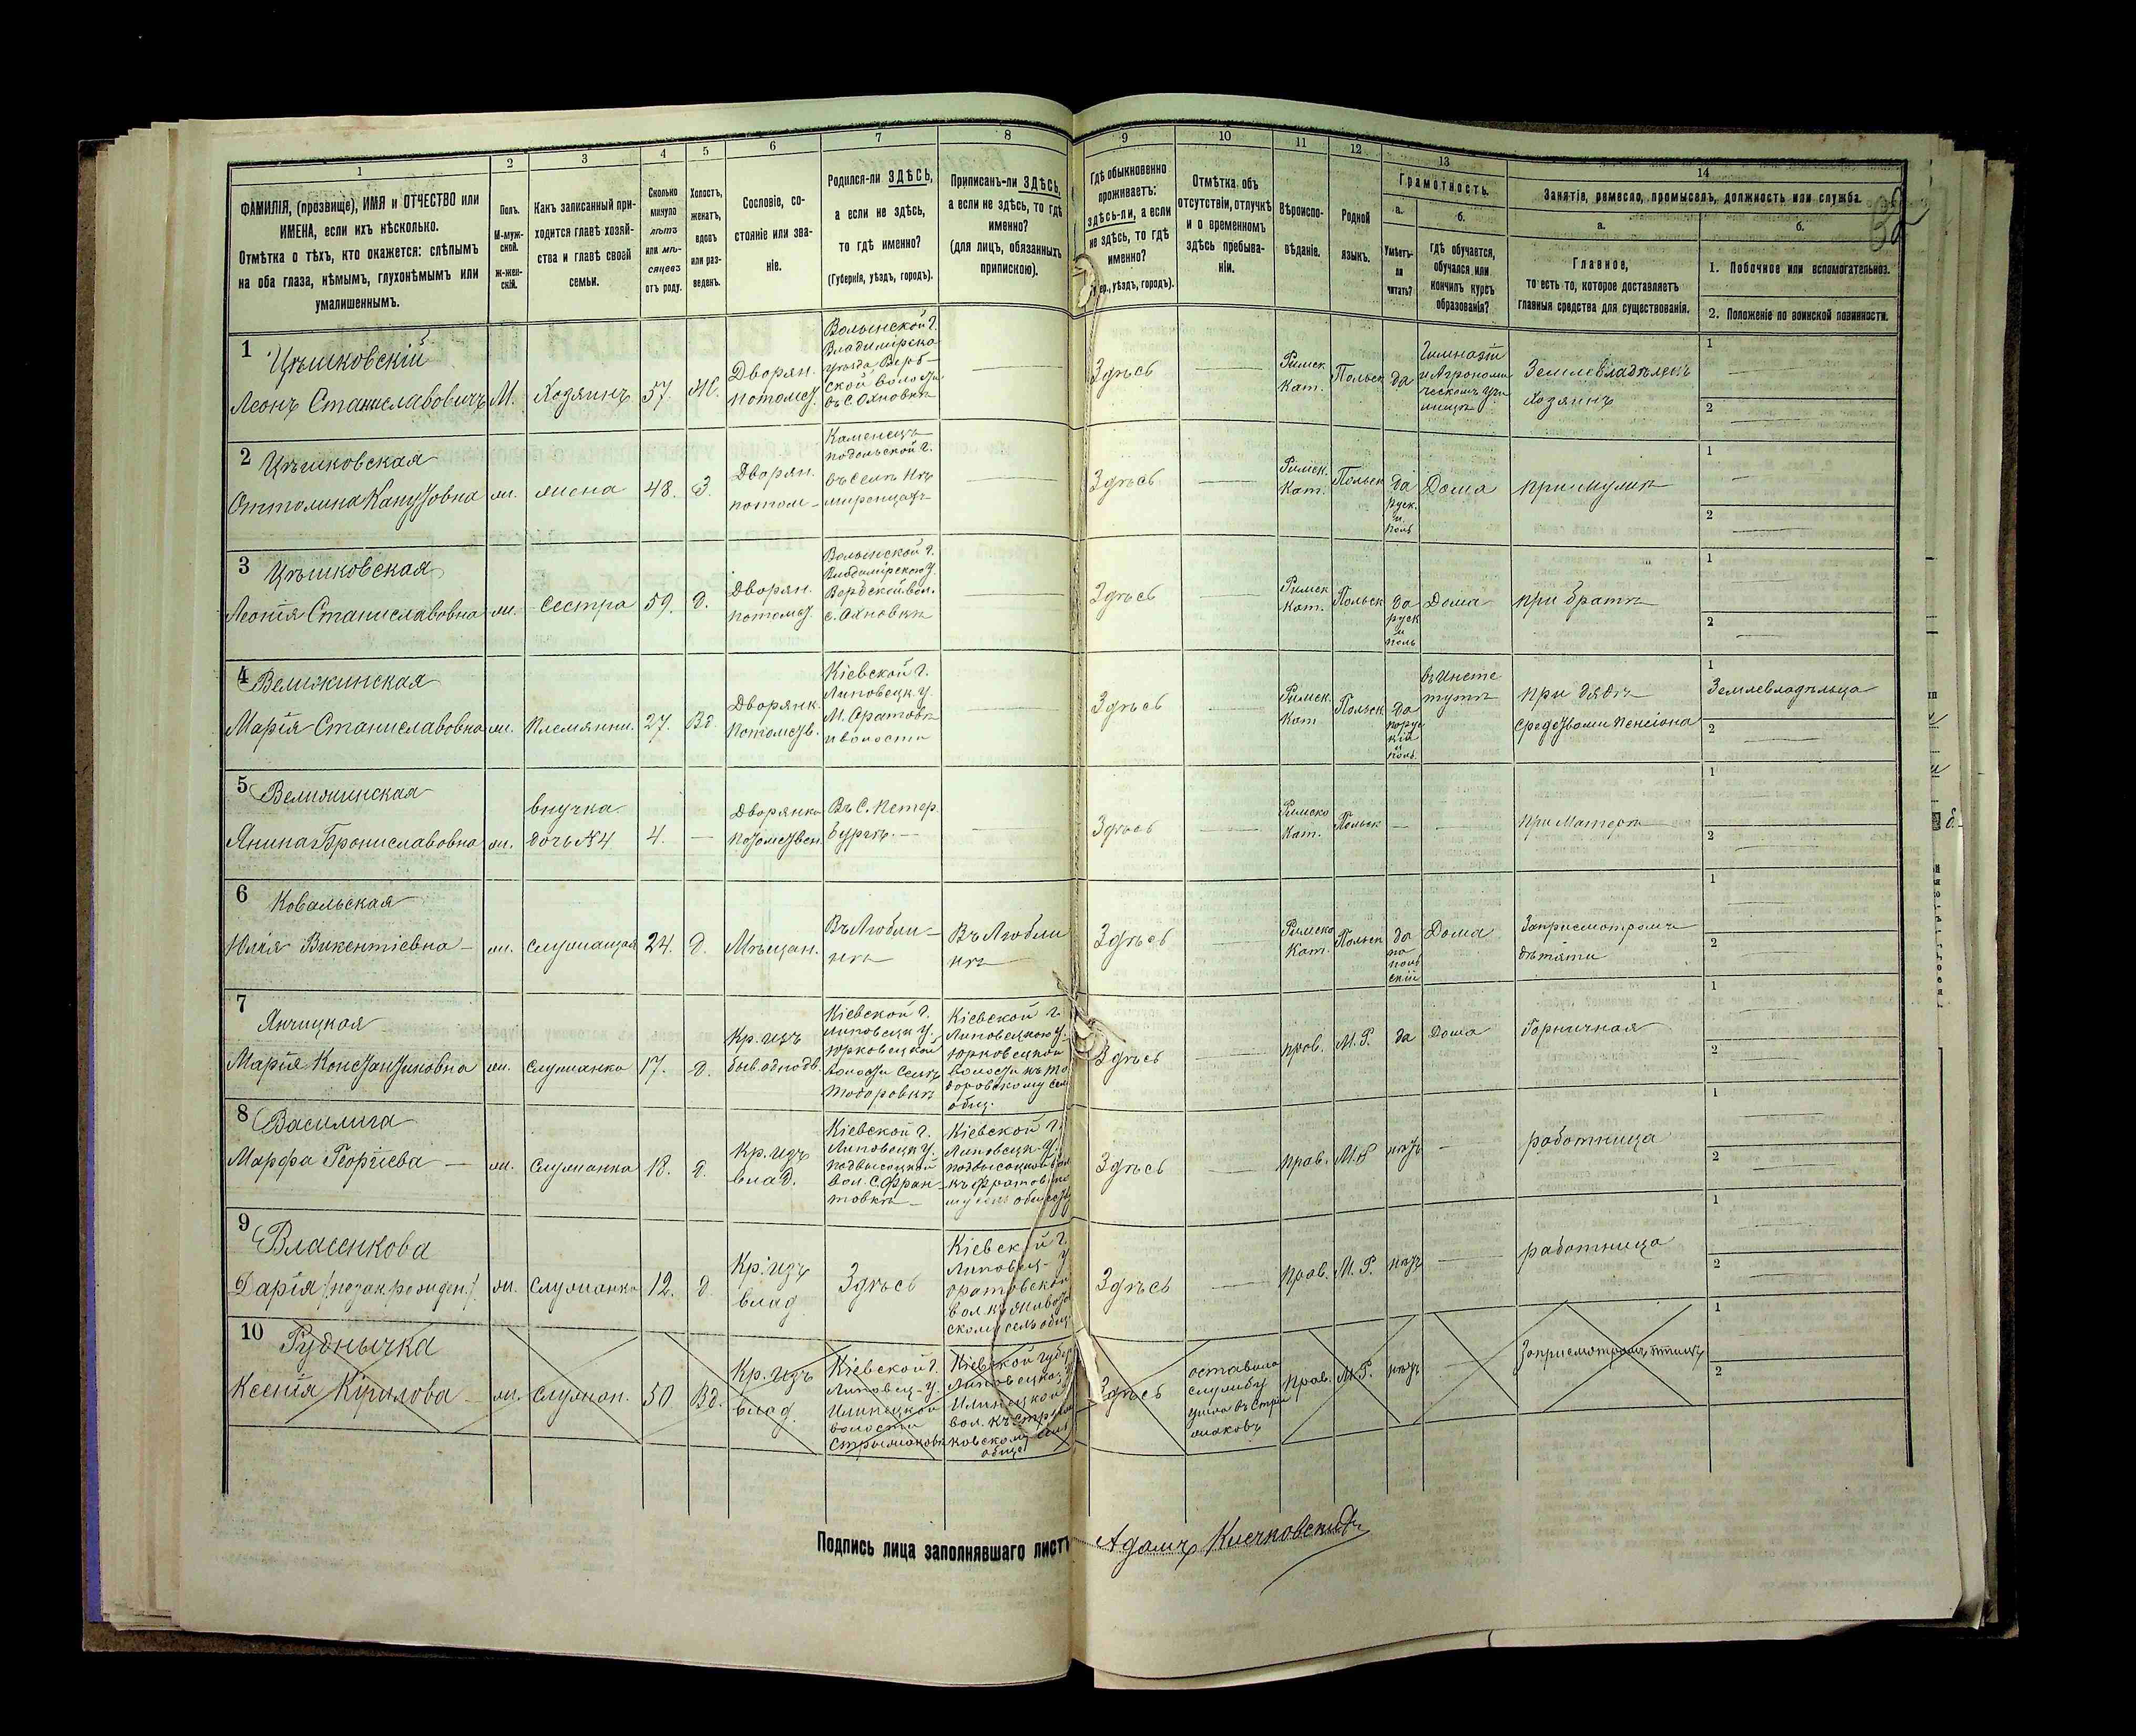 1
2
3
4
5
6
7
8
9
10
11
12
13
14
ФАМИЛІЯ, (прозвище), ИМЯ и ОТЧЕСТВО или
ИМЕНА, если ихъ нѣсколько.
Отмѣтка о тѣхъ, кто окажется: слѣпымъ
на оба глаза, нѣмымъ, глухонѣмымъ или
умалишеннымъ.
Полъ.
М-муж-
ской.
Ж-жен-
скій.
Какъ записанный при-
ходится главѣ хозяй-
ства и главѣ своей
семьи.
Сколько
минуло
лѣтъ
или мѣ-
сяцевъ
отъ роду.
Холостъ,
женатъ,
вдовъ
или раз-
веденъ.
Сословіе, со-
стояніе или зва-
ніе.
Родился-ли ЗДѢСЬ,
а если не здѣсь,
то гдѣ именно?
(Губернія, уѣздъ, городъ).
Приписанъ-ли ЗДѢСЬ,
а если не здѣсь, то гдѣ
именно?
(для лицъ, обязанныхъ
припискою).
Гдѣ обыкновенно
проживаетъ:
здѣсь-ли, а если
не здѣсь, то гдѣ
именно?
уѣздъ, городъ).
Отмѣтка объ
отсутствіи, отлучкѣ
и о временномъ
здѣсь пребыва-
ніи.
Вѣроиспо-
вѣданіе.
Родной
языкъ.
Грамотность.
а.
Умѣетъ-
ли
читать?
б.
гдѣ обучается,
обучался или
кончилъ курсъ
образованія?
Занятіе, ремесло, промыселъ, должность или служба.
а.
Главное,
то есть то, которое доставляетъ
главныя средства для существованія.
б.
1. Побочное или вспомогательное.
2. Положеніе по воинской повинности.
1
Цѣшковскій
Леонъ Станиславовичъ
М.
Хозяинъ
57.
Ж.
Дворян.
потомст.
Волынской г.
Владимірско
уѣзда Верб-
ской волости
въ с. Охновкѣ
Здѣсь
Римск
Кат.
Польск
да
Гимназіи
и Агрономи
ческомъ учи
лищѣ
Землевладѣлецъ
хозяинъ
1
2
2
Цѣшковская
ж.
жена
48.
З.
Дворян.
потом-
Каменецъ
подольской г.
въ селѣ
Здѣсь
Римск.
Кат.
Польск
да
руск.
и
поль
Дома
при мужѣ
1
2
3
Цѣшковская
Леонія Станиславовна
ж.
Сестра
59.
д.
Дворян.
потомст.
Волынской г.
Владимірскою у.
Вербской вол.
с. Охновкѣ
Здѣсь
Римск
Кат.
Польск
да
руск
и
поль
Дома
при братѣ
1
2
4
Вележинская
Марія Станиславовна
ж.
Племянни.
27.
Вд
Дворянк.
Потомств.
Кіевской г.
Липовецк. у.
М. Оратовѣ
и волости
Здѣсь
Римск.
Кат
Польск
да
порус
кій
и
поль.
въ Инсти
тутѣ
при дядѣ
средствами Пенсіона
1
Землевладѣлица
2
5
Вележинская
Янина Брониславовна
ж.
внучка
дочь №4
4.
—
Дворянка
Потомствен.
Въ С. Петер
бургѣ.
Здѣсь
Римско
Кат.
Польск
—
при Матери
1
2
6
Ковальская
Юлія Викентіевна
ж.
служащая
24.
д.
Мѣщан.
Въ Любли-
нѣ
Въ Любли
нѣ
Здѣсь
Римско
Кат.
Польск
да
по
поль
скій
Дома
За присмотромъ
дѣтяти
1
2
7
Янчицкая
Марія Константиновна
ж.
служанка
17.
д.
Кр. изъ
быв. однодв.
Кіевской г.
Липовецк у.
Юрковецкой
волости селѣ
Тодоровкѣ
Кіевской г.
Липовецкою у.
Юрковецкой
волости къ То
доровскому сел
общ.
Здѣсь
прав.
М. Р.
да
Дома
Горничная
1
2
8
Василига
Марфа Георгіева
ж.
служанка
18.
д.
Кр. изъ
влад.
Кіевской г.
Липовецк у.
подвысоцкой
вол. с. Фран-
товкѣ
Кіевской г.
Липовецк. у.
подвысоцкой
Здѣсь
прав.
М. Р
нѣтъ
—
работница
1
2
9
Власенкова
Дарія /незак. рожден./
ж.
служанка
12.
д
Кр. изъ
влад
Здѣсь
Кіевской г.
Липовец- у
оратовской
Здѣсь
прав.
М. Р.
нѣтъ
—
работница
1
2
10
Руднычка
Ксенія Кірилова
ж.
служан.
50.
Вд.
Кр. изъ
влад.
Кіевской г.
Липовец- у.
Илинецкой
волости
Кіевской губер
Липовецко у
Илинецкой
вол. къ
ковскому сель
общ.
Здѣсь
оставила
службу
ушла въ Стри
жаковъ
прав.
М. Р.
нѣтъ
За присмотромъ птицъ
1
2
Подпись лица заполнявшаго листъ
Адамъ